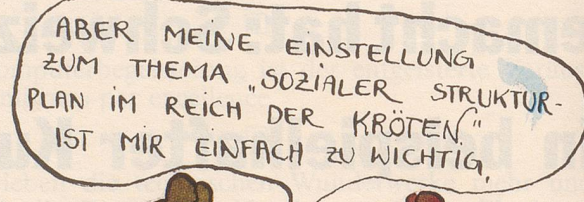 ABER MEINE EINSTELLUNG
ZUM THEMA „SOZIALER STRUKTUR-
PLAN IM REICH DER KRÖTEN"
IST MIR EINFACH ZU WICHTIG,